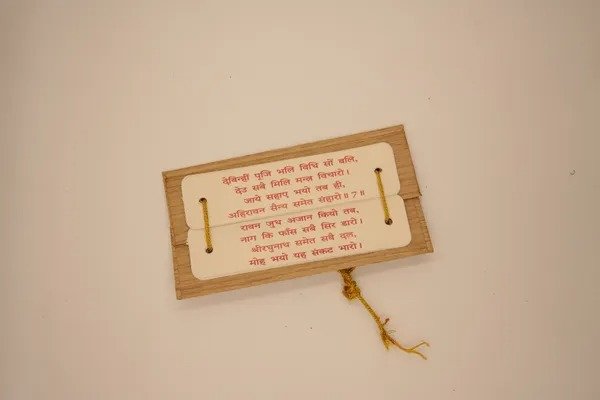 देबिन्हीं पूजि भलि विधि सों बलि,
देउ सबै मिलि मन्त्र विचारो।
जाये सहाए भयो तब ही,
अहिरावन सैन्य समेत संहारो॥7॥
रावन जुध अजान कियो तब,
नाग कि फाँस सबै सिर डारो।
श्रीरघुनाथ समेत सबै दल,
मोह भयो यह संकट भारो।